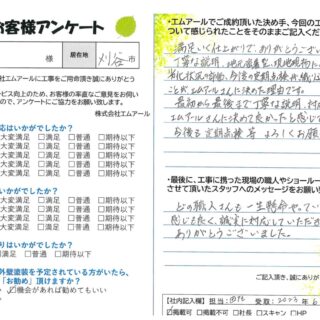 お客様アンケート
様 居在地 刈谷市
社エムアールに工事をご用命頂き誠にありがとう
ービス向上のため、お客様の率直なご意見をお伺い
ので、アンケートにご協力をお願い致します。
株式会社エムアール
応はいかがでしたか？
大変満足 □満足 □普通 □期待以下
大変満足 □満足 □普通 □期待以下
大変満足 □満足 □普通 □期待以下
大変満足 □満足 □普通 □期待以下
かがでしたか？
大変満足 □満足 □普通 □期待以下
大変満足 □満足 □普通 □期待以下
大変満足 □満足 □普通 □期待以下
大変満足 □満足 □普通 □期待以下
りはいかがでしたか？
大変満足 □満足 □普通 □期待以下
外壁塗装を予定されている方がいたら、
「お勧め」頂けますか？
機会があれば勧めてもいい
・エムアールでご成約頂いた決め手、今回の工
ついて感じられたことをそのままご記入くだ
満足いく仕上がりで、ありがとうござい
丁寧な説明、
がエムアールさんに決めた理由です。
最初から最後まで丁寧な説明、対
エムアールさんに決めて良かったと感じ
今後も定期点検等 よろしくお願
・最後に、工事に携った現場の職人やショールー
させて頂いたスタッフへのメッセージをお願い
どの職人さんも一生懸命やってい
感じも良く、誠実に対応していただき
ありがとうございました。
ご記入頂き、誠に
【社内記入欄】 担当： 受取：2023年6
掲載可 □掲載不可 □社長 □スキャン □HP